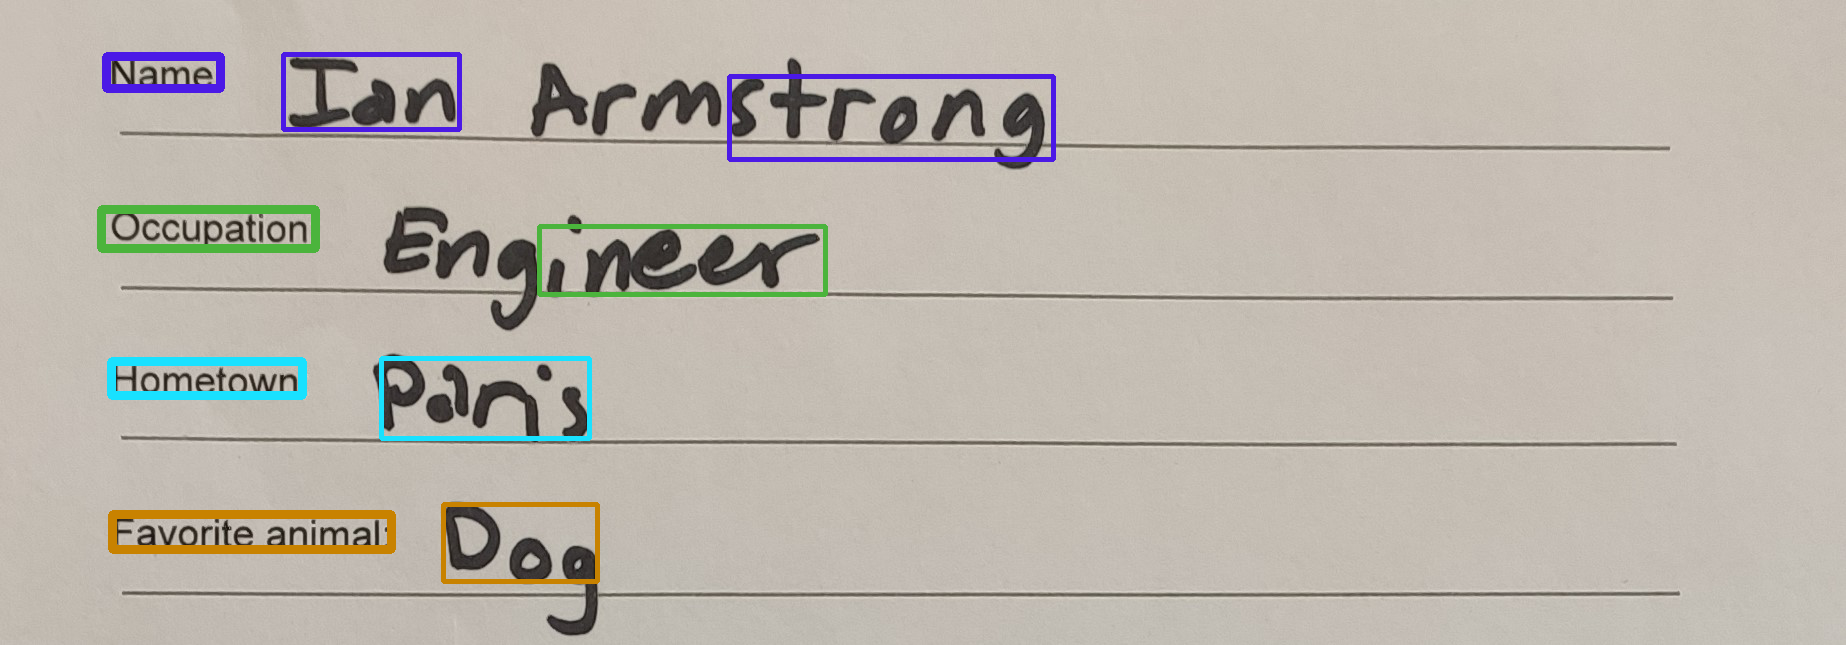 Name Ian Armstrong
Occupation Engineer
Hometown Paris
Favorite animal: Dog